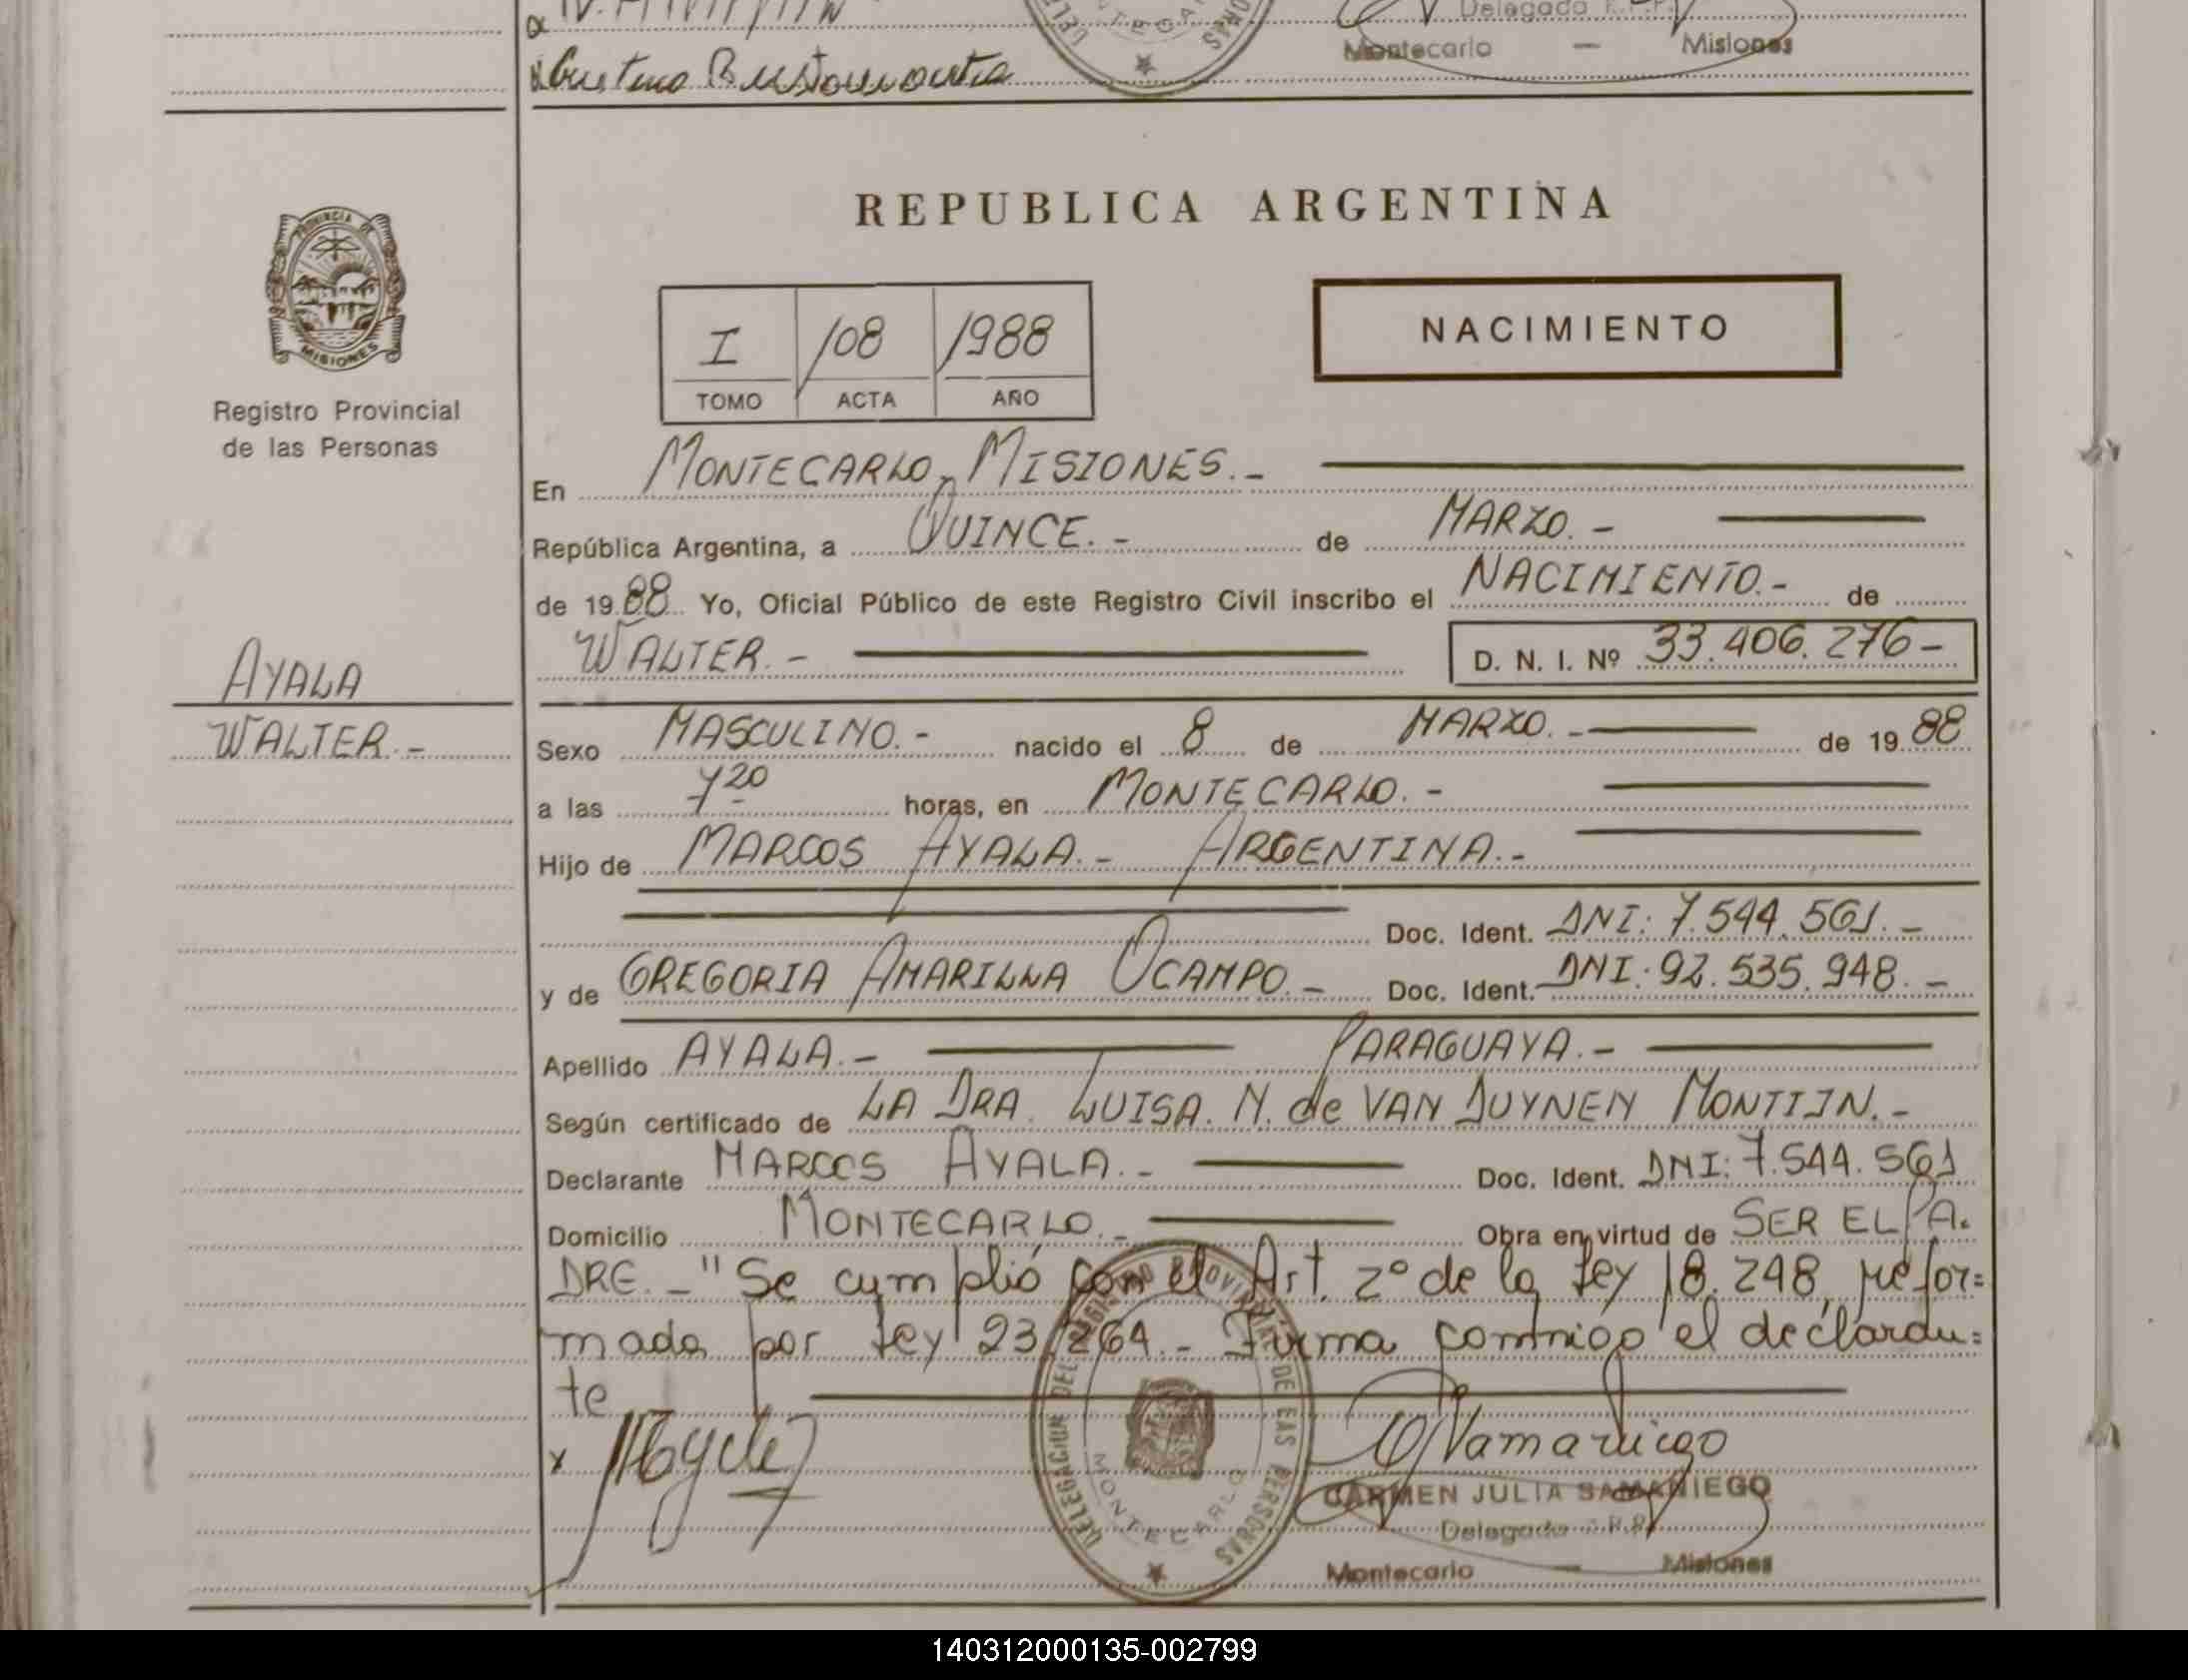 Delegada R.P.P.
Montecarlo — Misiones
REPUBLICA ARGENTINA
PROVINCIA DE
MISIONES
Registro Provincial
de las Personas
I /08 /1988
TOMO ACTA AÑO
NACIMIENTO
En MONTECARLO, MISIONES.-
República Argentina, a QUINCE.- de MARZO.-
de 1988 Yo, Oficial Público de este Registro Civil inscribo el NACIMIENTO.- de
WALTER.- D. N. I. Nº 33.406.276-
AYALA
WALTER.-
Sexo MASCULINO.- nacido el 8 de MARZO.- de 1988
a las 7 20 horas, en MONTECARLO.-
Hijo de MARCOS AYALA.- ARGENTINA.-
Doc. Ident. DNI: 7.544.561.-
y de GREGORIA AMARILLA OCAMPO.- Doc. Ident. DNI: 92.535.948.-
Apellido AYALA.- PARAGUAYA.-
Según certificado de LA DRA. LUISA. N. de VAN DUYNEN MONTIJN.-
Declarante MARCOS AYALA.- Doc. Ident. DNI: 7.544.561
Domicilio MONTECARLO.- Obra en virtud de SER EL PA.
DRE.- "Se cumplió con el Art. 2º de la Ley 18.248, refor=
mada por Ley 23.264.- Firma conmigo el declaran=
te
x
DELEGACION DEL REGISTRO PROVINCIAL DE LAS PERSONAS
MONTECARLO
CARMEN JULIA SAMANIEGO
Delegada R.P.P.
Montecarlo — Misiones
140312000135-002799